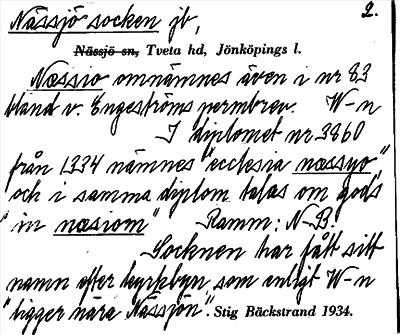 Nässjö socken jb, 2.
Nässjö sn, Tveta hd, Jönköpings l.
Næssio omnämnes även i nr 83
bland v. Engeströms permbrev. W-n
I diplomet nr 3860
från 1334 nämnes "ecclesia næssyo"
och i samma diplom talas om gods
"in næsiom" Ramm: N-B.
Socknen har fått sitt
namn efter kyrkbyn, som enligt W-n
"ligger nära Nässjön". Stig Bäckstrand 1934.